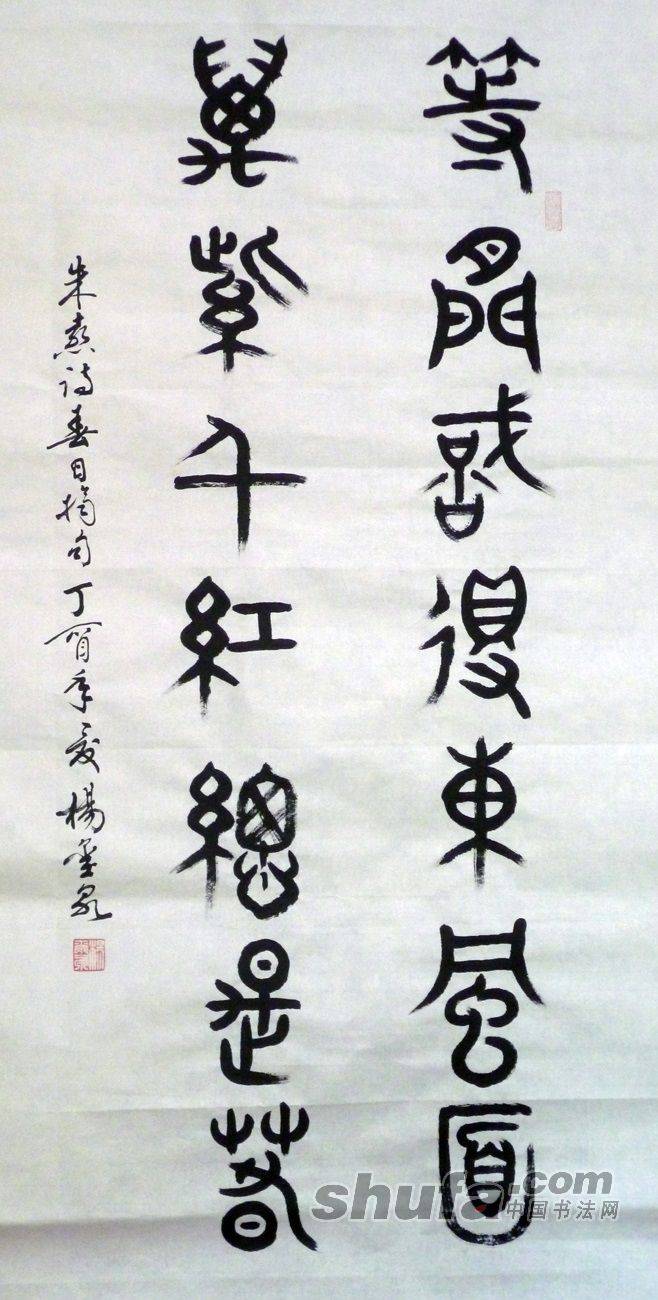 等閒識得東風面
萬紫千紅總是春
朱熹诗春日摘句丁酉年夏楊
shufa.com
中国书法网